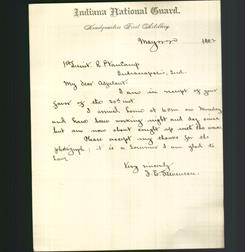 Indiana National Guard.
Headquarters First Artillery
May 22 1882
1st Lieut.
Indianapolis, Ind.
My dear Adjutant:
I am in receipt of your
favor of the 20th inst.
I arrived home at 6 am on Monday
and have been working night and day since
but am now about caught up with the work
Please accept my thanks for the
photograph; it is a souvenir I am glad to
have.
Very sincerely